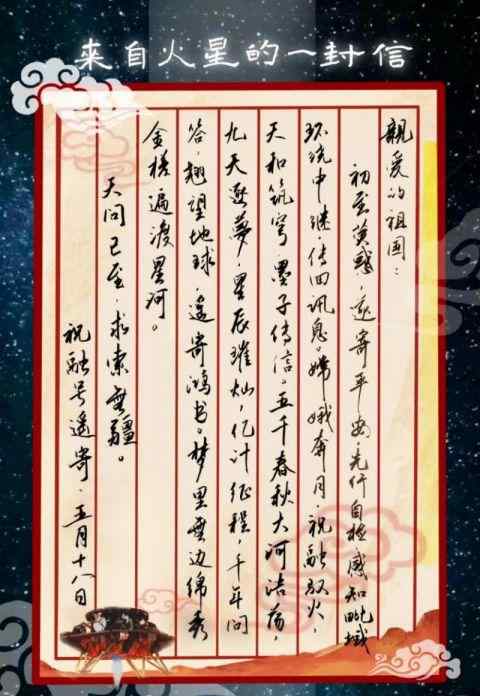 来自火星的一封信
親爱的祖国：
初至荧惑，遥寄平安，先行自检感知域
环绕中继，传回讯息。嫦娥奔月，祝融驭火，
天和筑穹，墨子传信。五千春秋大河浩荡，
九天逐夢，星辰璀灿，亿计征程，千年问
答，翘望地球，遥寄鸿书。梦里無边锦秀
金槎遍渡星河。
天问已至，求索無疆。
祝融号遥寄·五月十八日